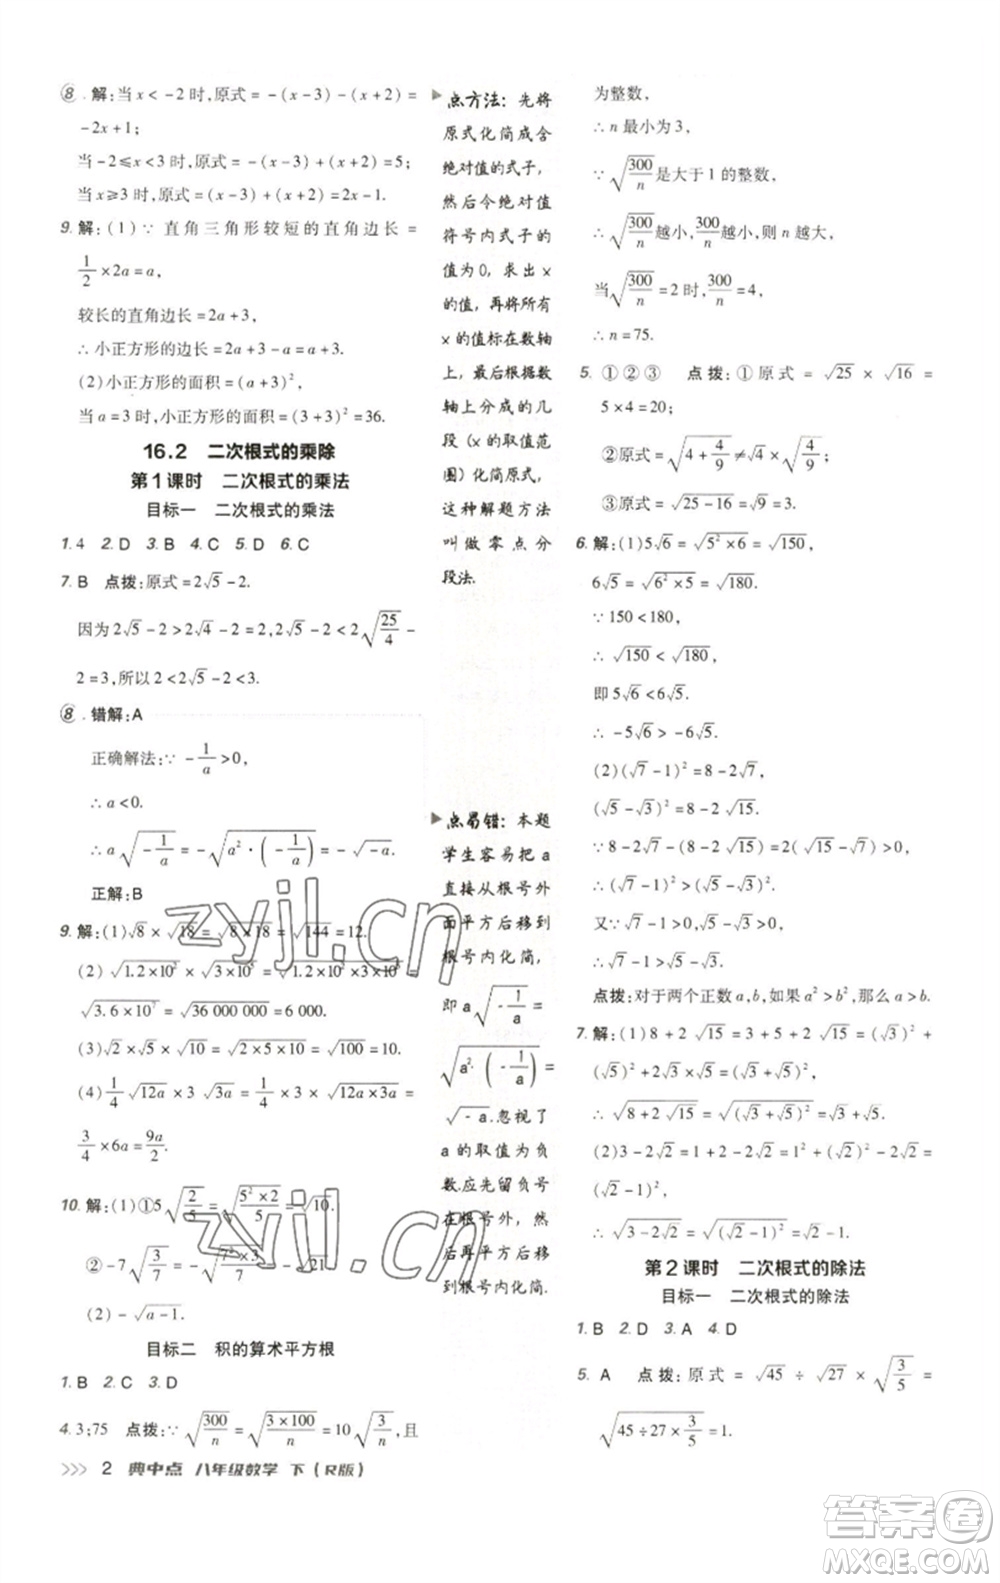 ⑧. 解:当 x < -2 时,原式 = -(x-3) - (x+2) =
-2x+1;
当 -2 ≤ x < 3 时,原式 = -(x-3) + (x+2) = 5;
当 x ≥ 3 时,原式 = (x-3) + (x+2) = 2x-1.
9. 解:(1)∵ 直角三角形较短的直角边长 =
1/2 × 2a = a,
较长的直角边长 = 2a+3,
∴ 小正方形的边长 = 2a+3-a = a+3.
(2)小正方形的面积 = (a+3)²,
当 a=3 时,小正方形的面积 = (3+3)² = 36.
16.2 二次根式的乘除
第1课时 二次根式的乘法
目标一 二次根式的乘法
1. 4 2. D 3. B 4. C 5. D 6. C
7. B 点拨:原式 = 2√5 - 2.
因为 2√5 - 2 > 2√4 - 2 = 2, 2√5 - 2 < 2√(25/4) -
2 = 3, 所以 2 < 2√5 - 2 < 3.
⑧. 错解:A
正确解法:∵ -1/a > 0,
∴ a < 0.
∴ a√(-1/a) = -√(a²·(-1/a)) = -√(-a).
正解:B
9. 解:(1)√8 × √18 = √(8×18) = √144 = 12.
(2) √(1.2×10²) × √(3×10⁵) = √(1.2×10²×3×10⁵) =
√(3.6×10⁷) = √(36 000 000) = 6 000.
(3)√2 × √5 × √10 = √(2×5×10) = √100 = 10.
(4) 1/4 √(12a) × 3√(3a) = 1/4 × 3 × √(12a×3a) =
3/4 × 6a = 9a/2.
10. 解:(1)①5√(2/5) = √(5²×2/5) = √10.
②-7√(3/7) = -√(7²×3/7) = -√21.
(2) -√(a-1).
目标二 积的算术平方根
1. B 2. C 3. D
4. 3;75 点拨:∵ √(300/n) = √(3×100/n) = 10√(3/n), 且
>>> 2 典中点 八年级数学 下(R版)
点方法:先将
原式化简成含
绝对值的式子,
然后令绝对值
符号内式子的
值为0, 求出 x
的值,再将所有
x 的值标在数轴
上,最后根据数
轴上分成的几
段(x 的取值范
围)化简原式,
这种解题方法
叫做零点分
段法.
点易错:本题
学生容易把 a
直接从根号外
面平方后移到
根号内化简,
即 a√(-1/a) =
√(a²·(-1/a)) =
√(-a). 忽视了
a 的取值为负
数.应先留负号
在根号外, 然
后再平方移
到根号内化简.
为整数,
∴ n 最小为 3,
∵ √(300/n) 是大于 1 的整数,
∴ √(300/n) 越小, 300/n 越小,则 n 越大,
当 √(300/n) = 2 时, 300/n = 4,
∴ n = 75.
5. ①②③ 点拨:①原式 = √25 × √16 =
5×4 = 20;
②原式 = √(4+4/9) ≠ √4 × √(4/9);
③原式 = √(25-16) = √9 = 3.
6. 解:(1)5√6 = √(5²×6) = √150,
6√5 = √(6²×5) = √180.
∵ 150 < 180,
∴ √150 < √180,
即 5√6 < 6√5,
∴ -5√6 > -6√5.
(2)(√7-1)² = 8-2√7,
(√5-√3)² = 8-2√15.
∵ 8-2√7-(8-2√15) = 2(√15-√7) > 0,
∴ (√7-1)² > (√5-√3)².
又∵ √7-1 > 0, √5-√3 > 0,
∴ √7-1 > √5-√3.
点拨:对于两个正数 a,b,如果 a² > b²,那么 a > b.
7. 解:(1)8+2√15 = 3+5+2√15 = (√3)² +
(√5)² + 2×√3×√5 = (√3+√5)²,
∴ √(8+2√15) = √((√3+√5)²) = √3+√5.
(2)3-2√2 = 2+1-2√2 = (√2)² + 1² - 2×1×√2 =
(√2-1)²,
∴ √(3-2√2) = √((√2-1)²) = √2-1.
第2课时 二次根式的除法
目标一 二次根式的除法
1. B 2. D 3. A 4. D
5. A 点拨:原式 = √45 ÷ √27 × √(3/5) =
√(45÷27×3/5) = √1 = 1.
zyjl.cn
zyjl.cn
答案圈
MXQE.COM